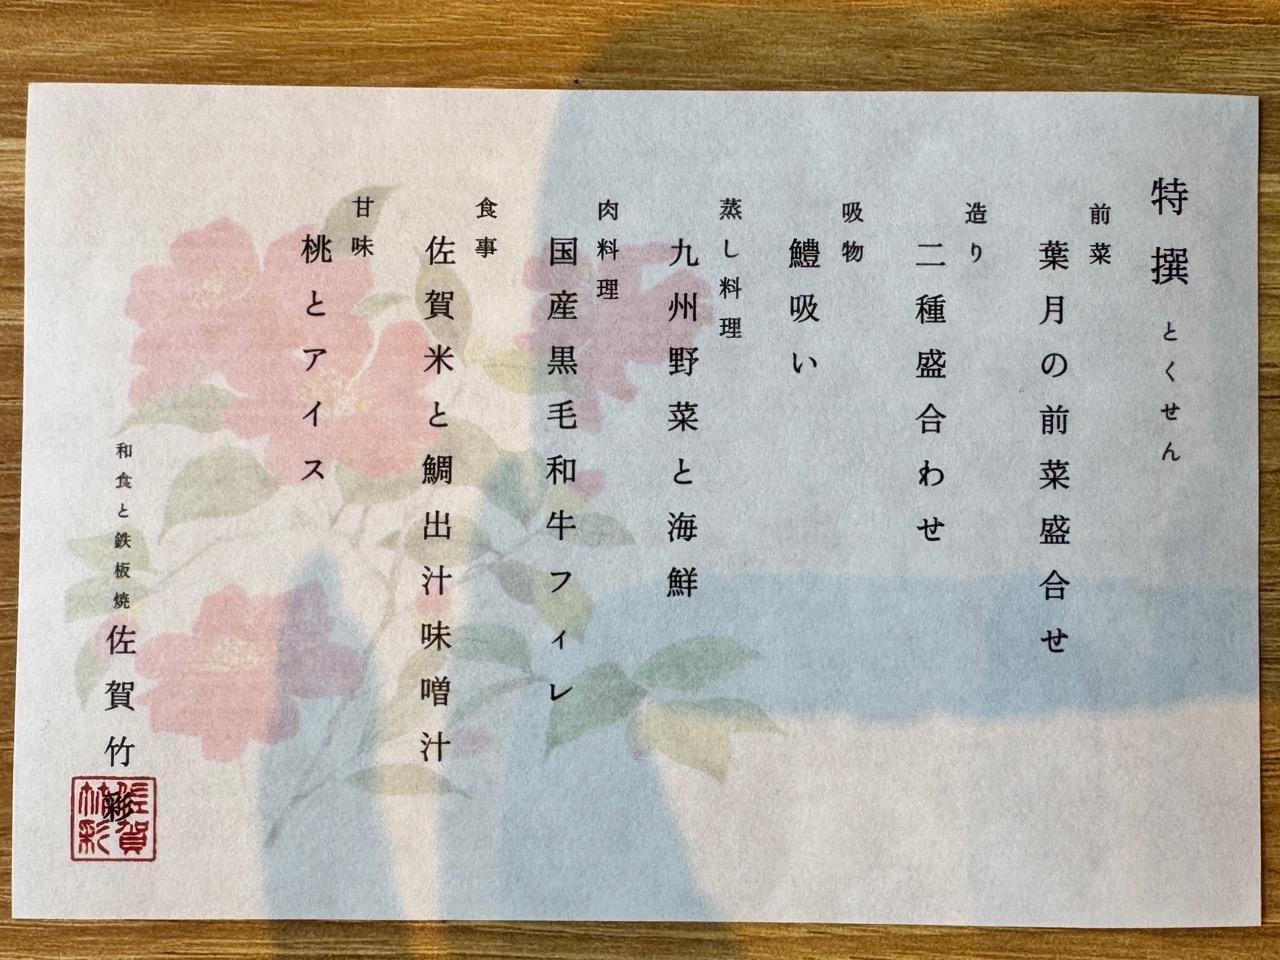 特撰 とくせん
前菜
葉月の前菜盛合せ
造り
二種盛合わせ
吸物
鱧吸い
蒸し料理
九州野菜と海鮮
肉料理
国産黒毛和牛フィレ
食事
佐賀米と鯛出汁味噌汁
甘味
桃とアイス
和食と鉄板焼 佐賀竹彩
佐賀
竹彩